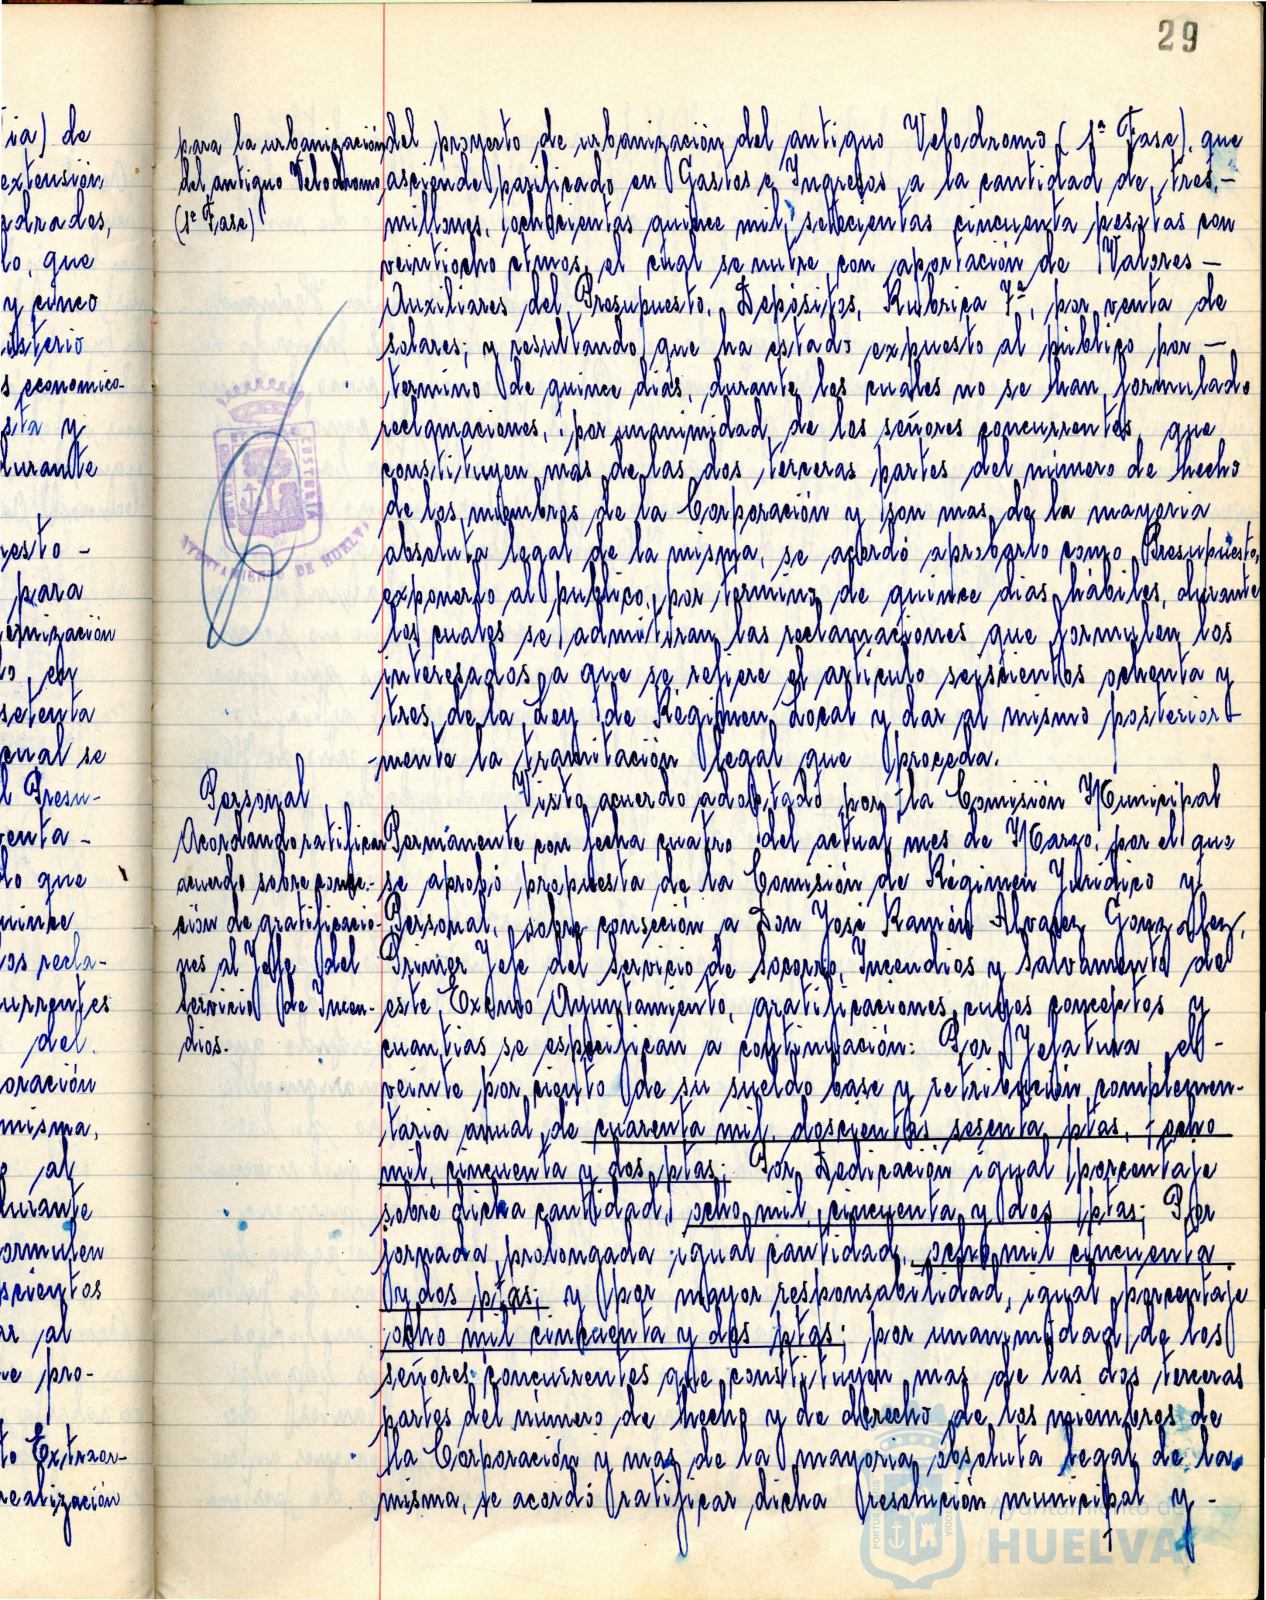 29
ia) de
extensión,
adrados,
lo, que
y cinco
isterio
s económico-
sta y
durante
esto -
para
ernización
en
setenta
cual se
l Presu-
venta -
do que
uince
os recla-
urrentes
del
oración
misma,
al
durante
ormulen
scientos
ar al
e pro-
to Extraor-
realización
para la urbanización
del antiguo Velodromo
(1ª Fase)
AYUNTAMIENTO DE HUELVA
Personal
Acordando ratificar
acuerdo sobre conce-
ción de gratificacio-
nes al Jefe del
Servicio de Incen-
dios.
del proyecto de urbanización del antiguo Velodromo (1ª Fase), que
asciende pasificado en Gastos e Ingresos, a la cantidad de tres, -
millones, ochocientas quince mil, setecientas cincuenta pesetas con
veintiocho ctmos, el cual se nutre con aportación de Valores -
Auxiliares del Presupuesto, Depósitos, Rúbrica 7ª, por venta de
solares; y resultando que ha estado expuesto al público por -
termino de quince días, durante los cuales no se han formulado
reclamaciones, por unanimidad de los señores concurrentes, que
constituyen mas de las dos terceras partes del número de hecho
de los miembros de la Corporación y son mas de la mayoria
absoluta legal de la misma, se acordó aprobarlo como Presupuesto,
exponerlo al publico, por termino de quince dias hábiles, durante
los cuales se admitiran las reclamaciones que formulen los
interesados a que se refiere el artículo seiscientos ochenta y
tres de la Ley de Régimen Local y dar al mismo posterior-
mente la tramitación legal que proceda.
Visto acuerdo adoptado por la Comisión Municipal
Permanente con fecha cuatro del actual mes de Marzo, por el que
se aprobó propuesta de la Comisión de Régimen Jurídico y
Personal, sobre conseción a Don José Ramón Alvarez Gonzalez,
Primer Jefe del Servicio de Socorro, Incendios y Salvamento de
este Excmo Ayuntamiento, gratificaciones cuyos conceptos y
cuantias se especifican a continuación: Por Jefatura el -
veinte por ciento de su sueldo base y retribución complemen-
taria anual de cuarenta mil, doscientas sesenta ptas, ocho
mil, cincuenta y dos ptas; Por Dedicación igual porcentaje
sobre dicha cantidad, ocho mil, cincuenta y dos ptas; Por
jornada prolongada igual cantidad, ocho mil cincuenta
y dos ptas; y por mayor responsabilidad, igual porcentaje
ocho mil cincuenta y dos ptas; por unanimidad de los
señores concurrentes que constituyen mas de las dos terceras
partes del número de hecho y de derecho de los miembros de
la Corporación y mas de la mayoria absoluta legal de la
misma, se acordó ratificar dicha resolución municipal y -
Ayuntamiento de
HUELVA